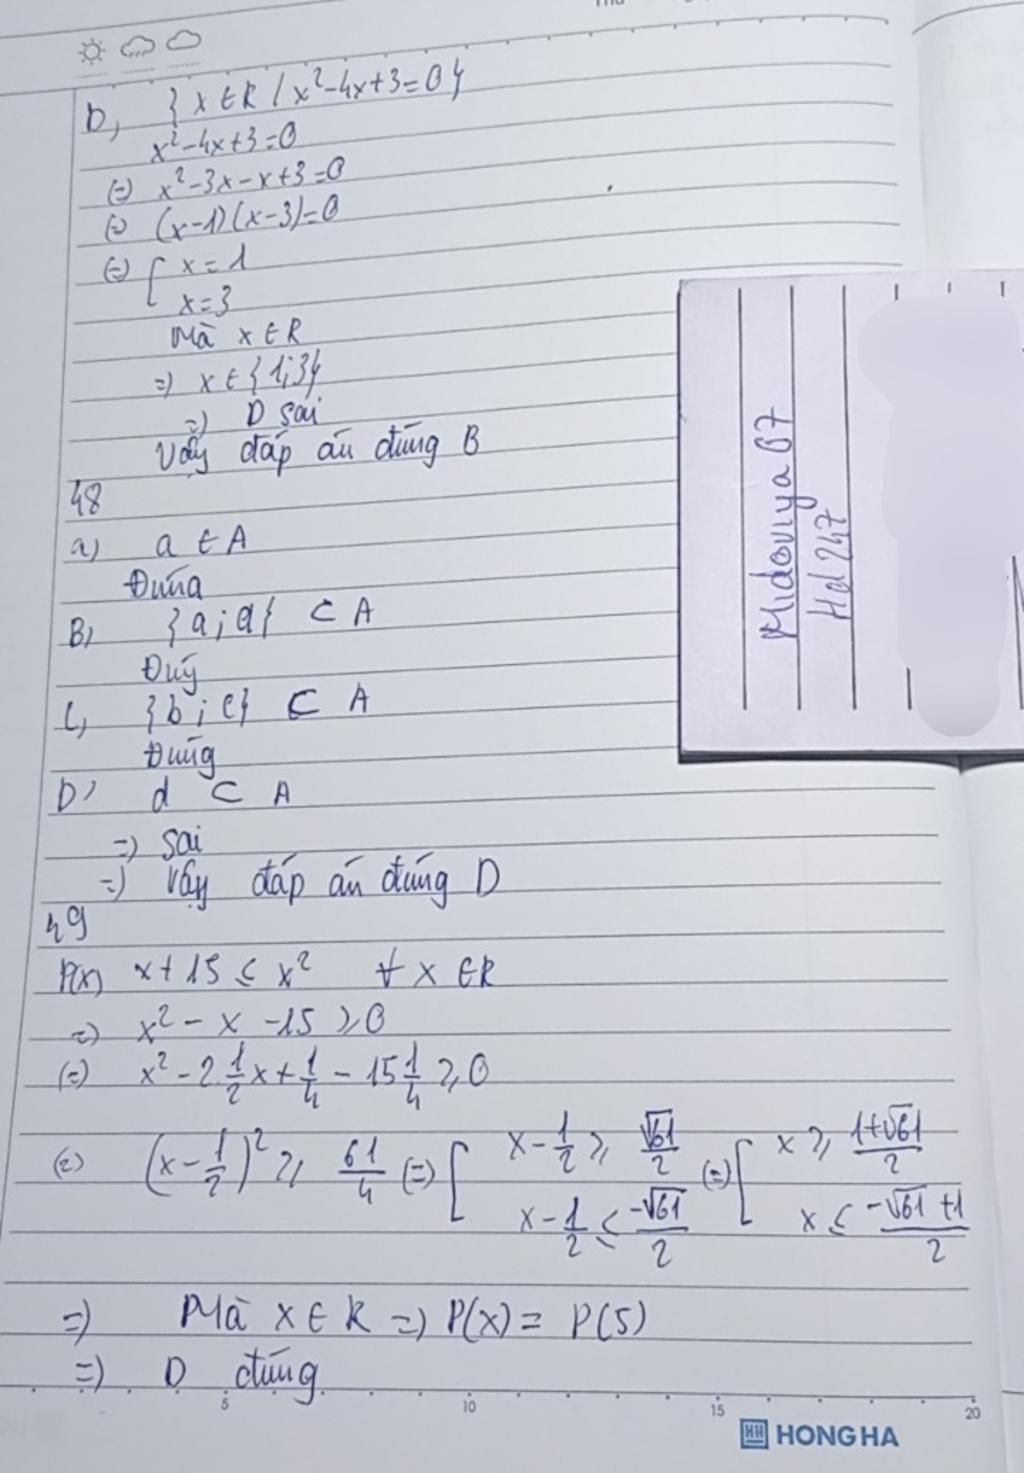 D, { x ∈ R / x²-4x+3=0}
x²-4x+3=0
(=) x²-3x-x+3=0
(=) (x-1)(x-3)=0
(=) [ x=1
x=3
Mà x ∈ R
=) x ∈ {1;3}
=) D sai
Vậy đáp án đúng B
48
a) a ∈ A
Đúng
B) {a;d} ⊂ A
Đúg
C, {b;c} ⊂ A
Đúng
D) d ⊂ A
=) sai
=) Vậy đáp án đúng D
49
P(x) x+15 ≤ x² ∀ x ∈ R
=) x² - x -15 ≥ 0
(=) x² - 2.1/2x + 1/4 - 15 1/4 ≥ 0
(=) (x-1/2)² ≥ 61/4 (=) [ x-1/2 ≥ √61/2 (=) [ x ≥ (1+√61)/2
x-1/2 ≤ -√61/2 x ≤ (-√61+1)/2
=) Mà x ∈ R =) P(x) = P(5)
=) D đúng
5 10 15 20
HH HONG HA
Midoviya 07
Hd 247